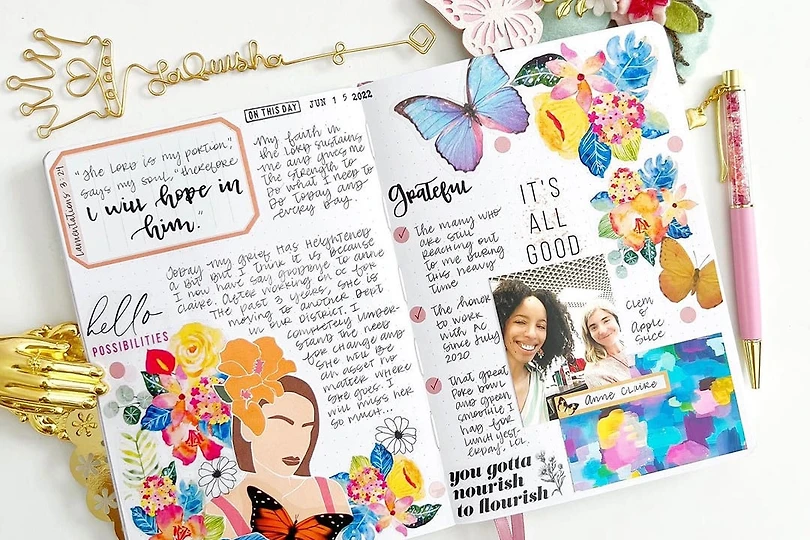 LaQuisha
ON THIS DAY JUN 15 2022
Lamentations 3:24
"The Lord is my portion,"
says my soul, "therefore
I will hope in
him."
My faith in
the Lord sustains
me and gives me
the strength to
do what I need to
do today and
every day.
Today my grief has heightened
a bit but I think it is because
I now have say goodbye to Anne
Claire. After working in CC for
the past 3 years, she is
moving to another dept
in our district. I
completely under-
stand the need
for change and
she will be
an asset no
matter where
she goes. I
will miss her
so much...
hello
POSSIBILITIES
grateful
The many who
are still
reaching out
to me during
this heavy
time
The honor
to work
with AC
since July
2020.
That great
poke bowl
and green
smoothie I
had for
lunch yest-
erday, LOL.
you gotta
nourish
to flourish
IT'S
ALL
GOOD
Clem
&
Apple
Slice
Anne Claire